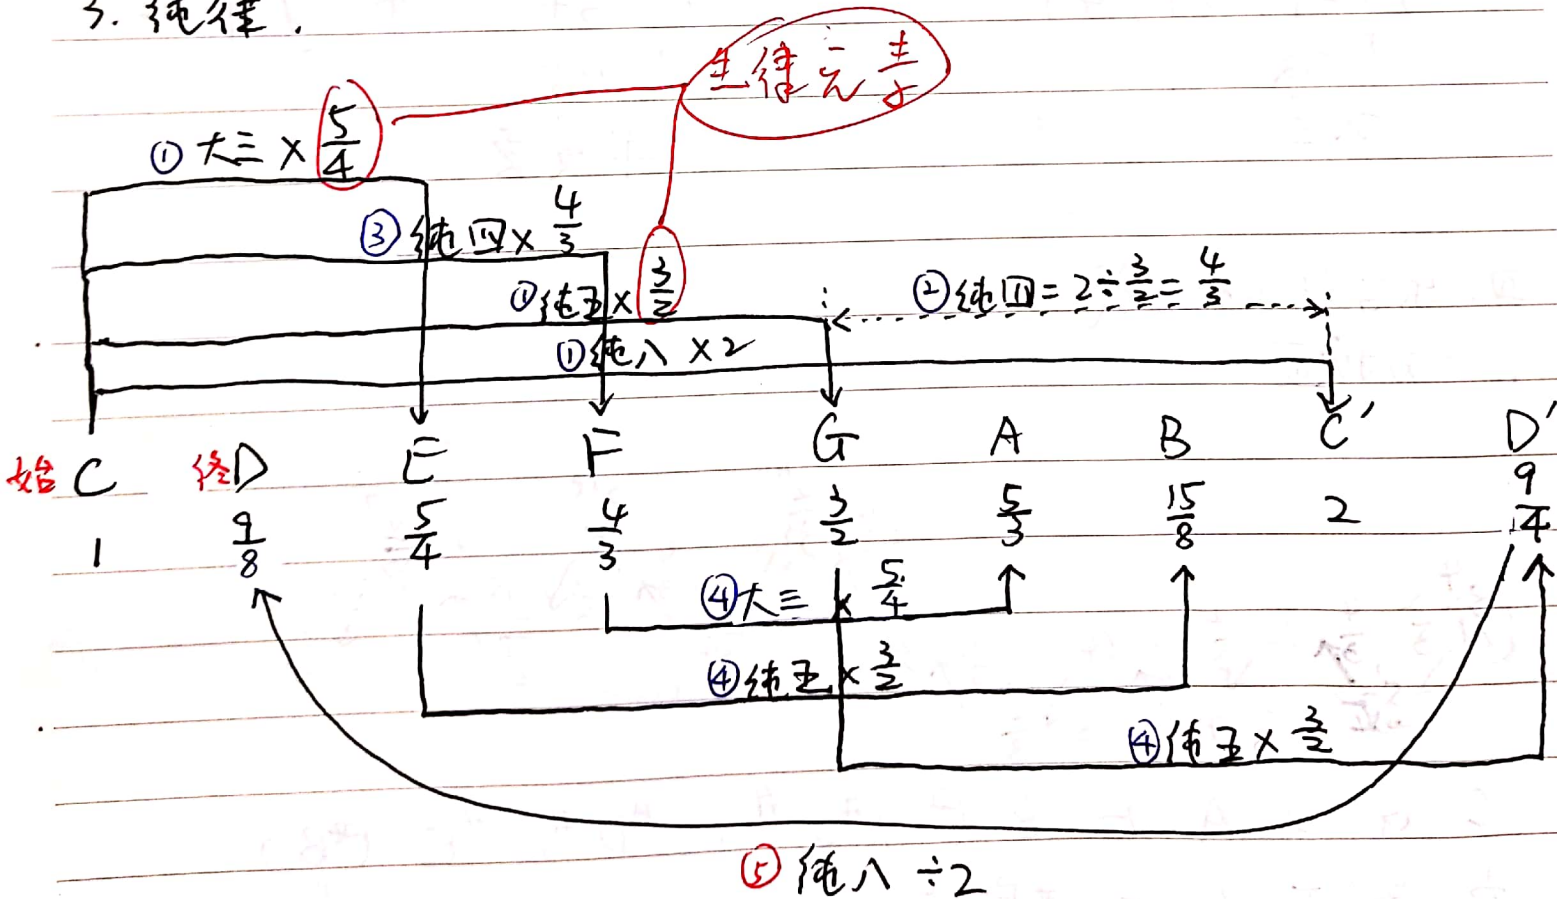 3. 纯律.
生律元素
① 大三 × 5/4
③ 纯四 × 4/3
① 纯五 × 3/2
② 纯四 = 2 ÷ 3/2 = 4/3
① 纯八 × 2
始 C 终 D E F G A B C' D'
1 9/8 5/4 4/3 3/2 5/3 15/8 2 9/4
④ 大三 × 5/4
④ 纯五 × 3/2
④ 纯五 × 3/2
⑤ 纯八 ÷2